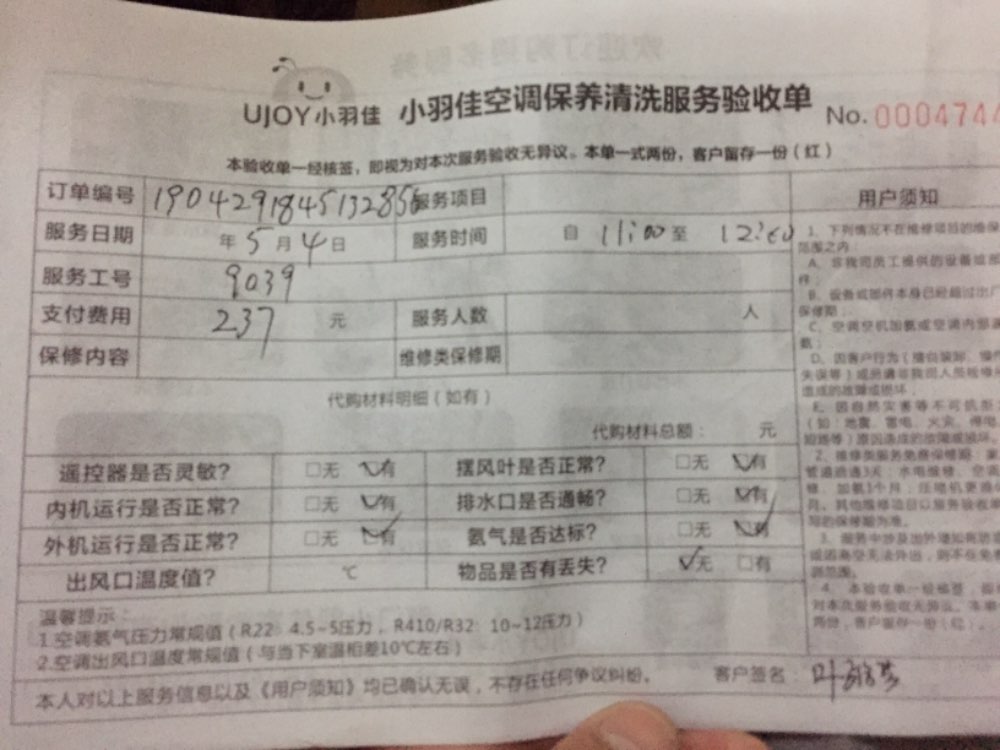 UJOY小羽佳 小羽佳空调保养清洗服务验收单 No. 0004744
本验收单一经核签，即视为对本次服务验收无异议。本单一式两份，客户留存一份（红）
订单编号 190429184513285 服务项目
服务日期 年5月4日 服务时间 自 11:00至 12:00
服务工号 9039
支付费用 237 元 服务人数 人
保修内容 维修类保修期
代购材料明细（如有）
代购材料总额： 元
遥控器是否灵敏？ □无 ☑有 摆风叶是否正常？ □无 ☑有
内机运行是否正常？ □无 ☑有 排水口是否通畅？ □无 ☑有
外机运行是否正常？ □无 ☑有 氨气是否达标？ □无 ☑有
出风口温度值？ ℃ 物品是否有丢失？ ☑无 □有
温馨提示：
1.空调氨气压力常规值（R22：4.5~5压力，R410/R32：10~12压力）
2.空调出风口温度常规值（与当下室温相差10℃左右）
本人对以上服务信息以及《用户须知》均已确认无误，不存在任何争议纠纷。 客户签名： 叶
用户须知
1、下列情况不在维修项目的维保
范围之内：
A、非我司员工提供的设备或部
件；
B、设备或部件本身已经超过出厂
保修期；
C、空调空机加氨或空调内部漏
氨；
D、因客户行为（擅自装卸、操作
失误等）或邀请非我司人员检修
造成的故障或损坏；
E、因自然灾害等不可抗拒
（如：地震、雷电、火灾、停电、
短路等）原因造成的故障或损坏。
2、维修类服务免费保修期：家
管道疏通3天；水电维修、空调
修、加氨1个月；压缩机更换
月。其他维修项目以服务验收单
写的保修期为准。
3、服务中涉及出外墙如有防盗
或因高空无法外出，则不在免
4、本验收单一经核签，即
对本次服务验收无异议。本单
两份，客户留存一份（红）。